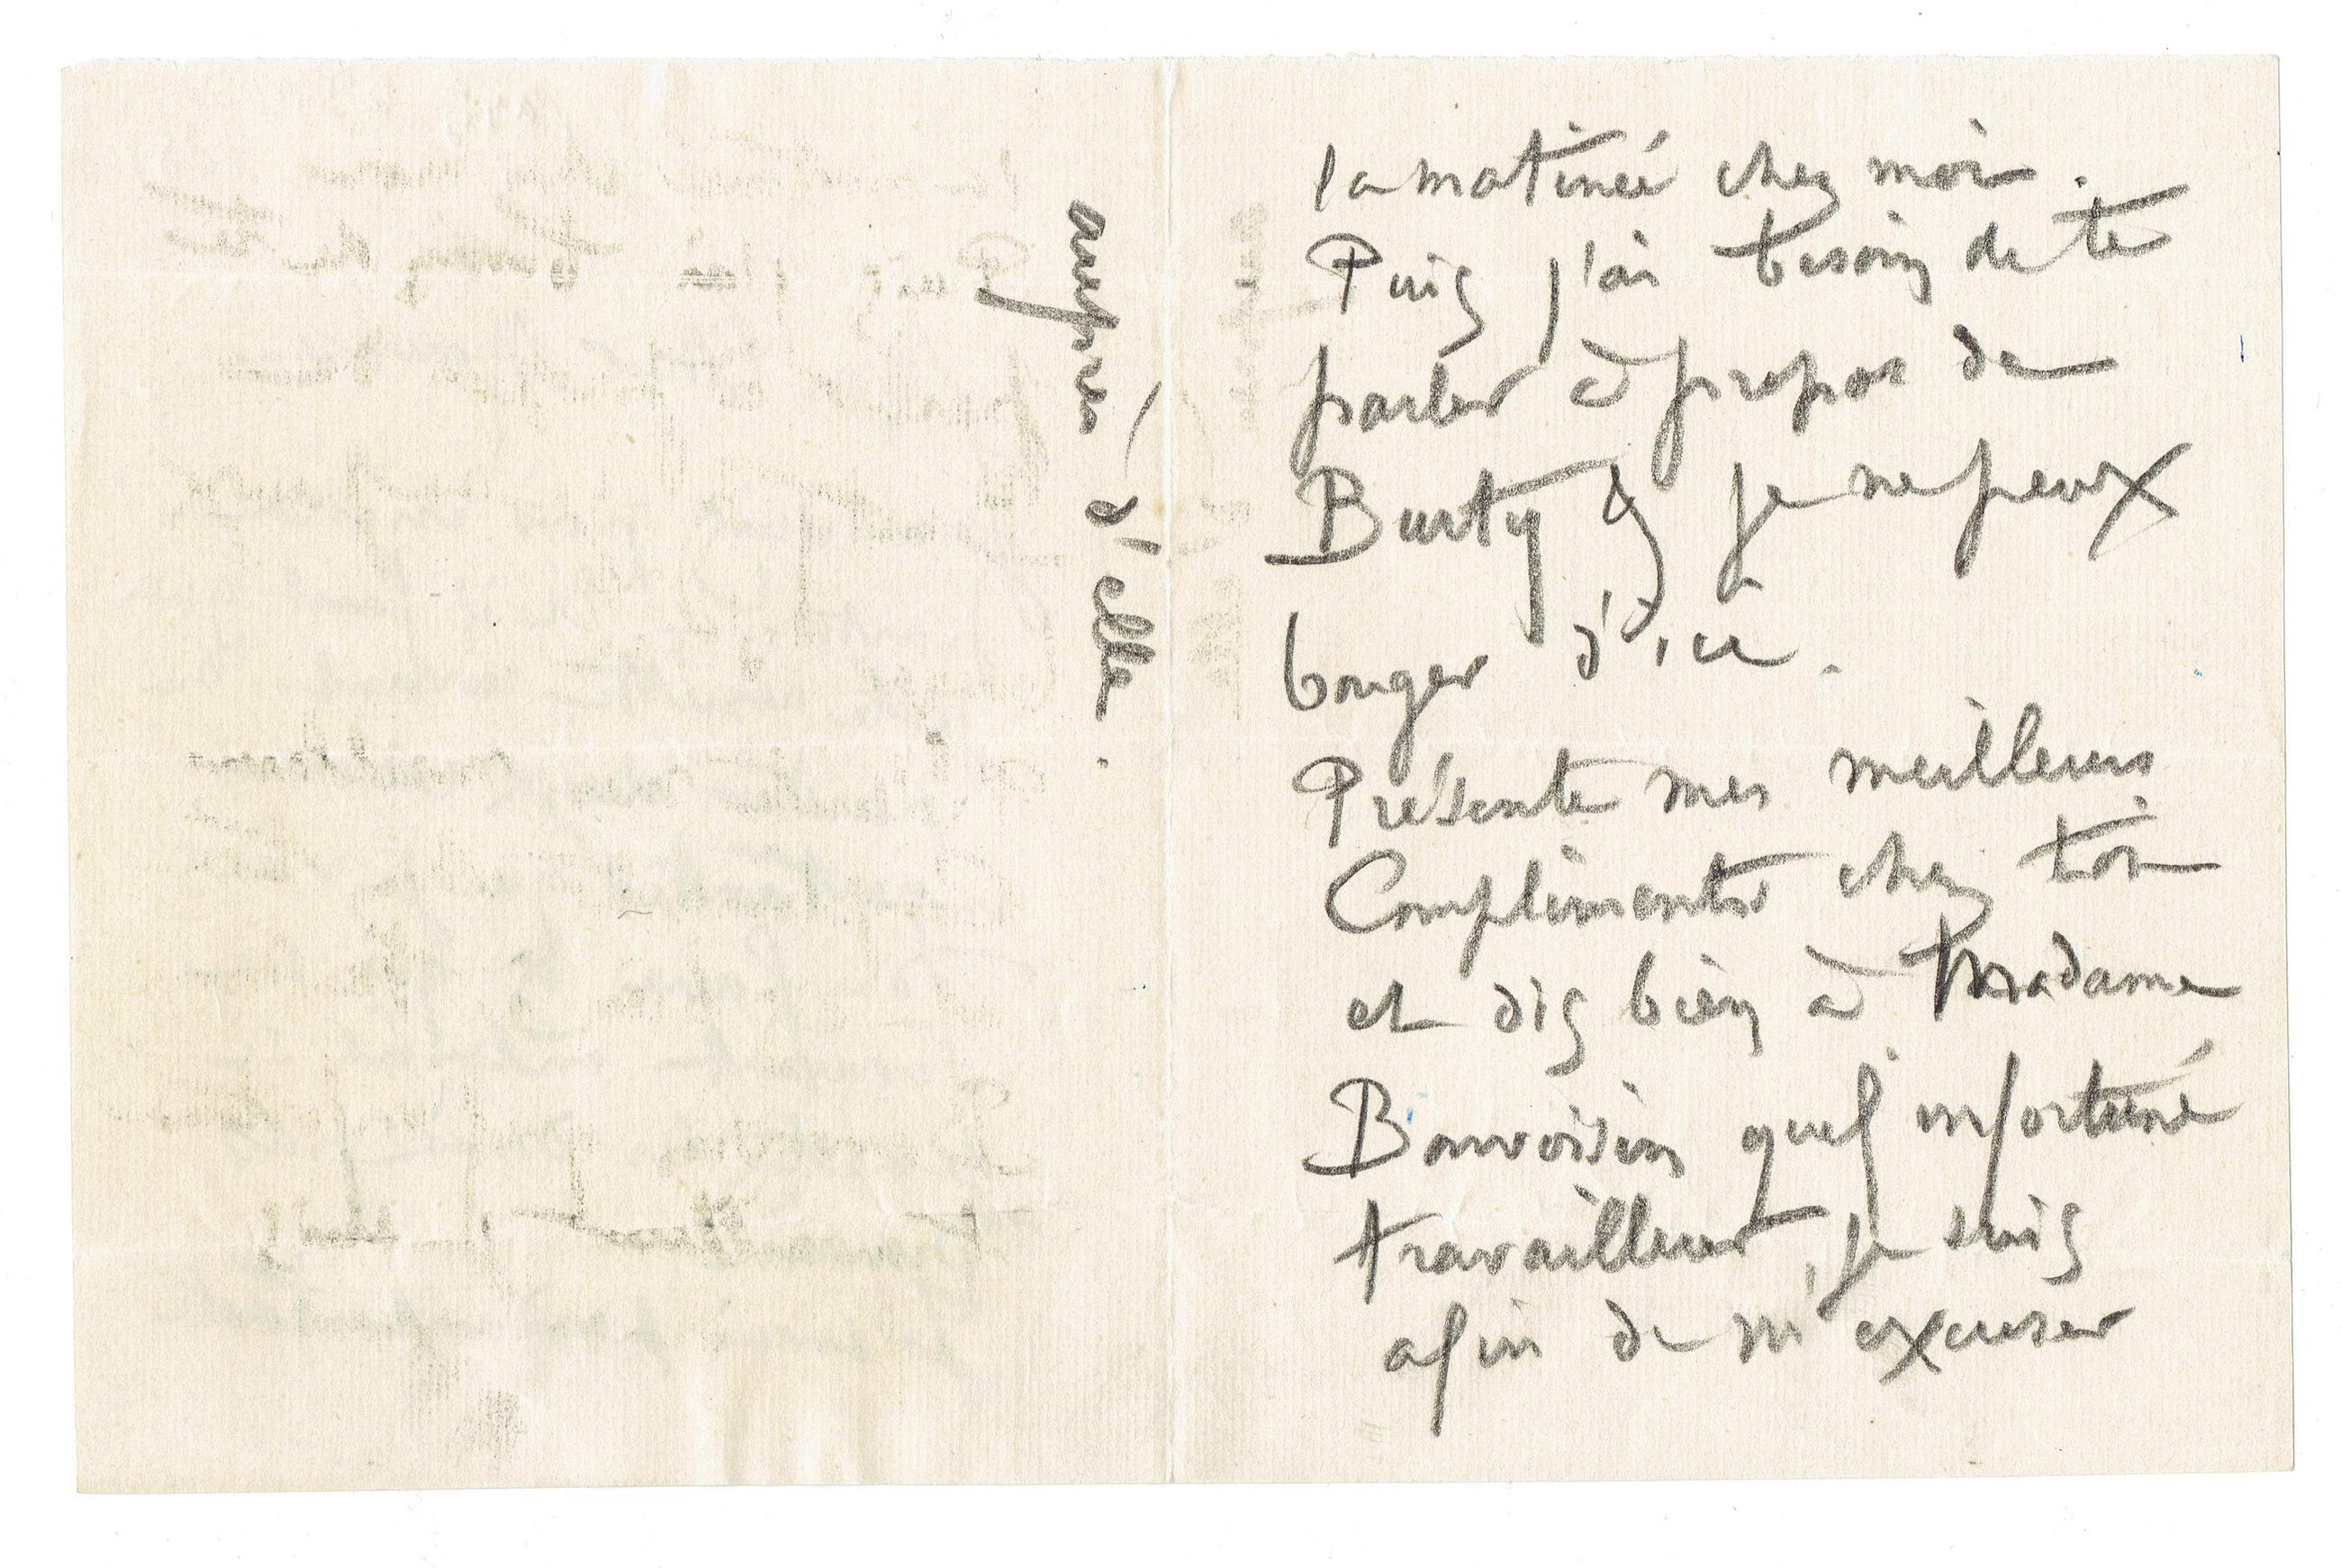 la matinée chez moi.
Puis j'ai besoin de te
parler à propos de
Burty & je ne peux
bouger d'ici.
Présente mes meilleurs
Compliments chez toi
et dis bien à Madame
Bonvoisin quel infortuné
travailleur, je suis
afin de m'excuser
auprès d'elle.